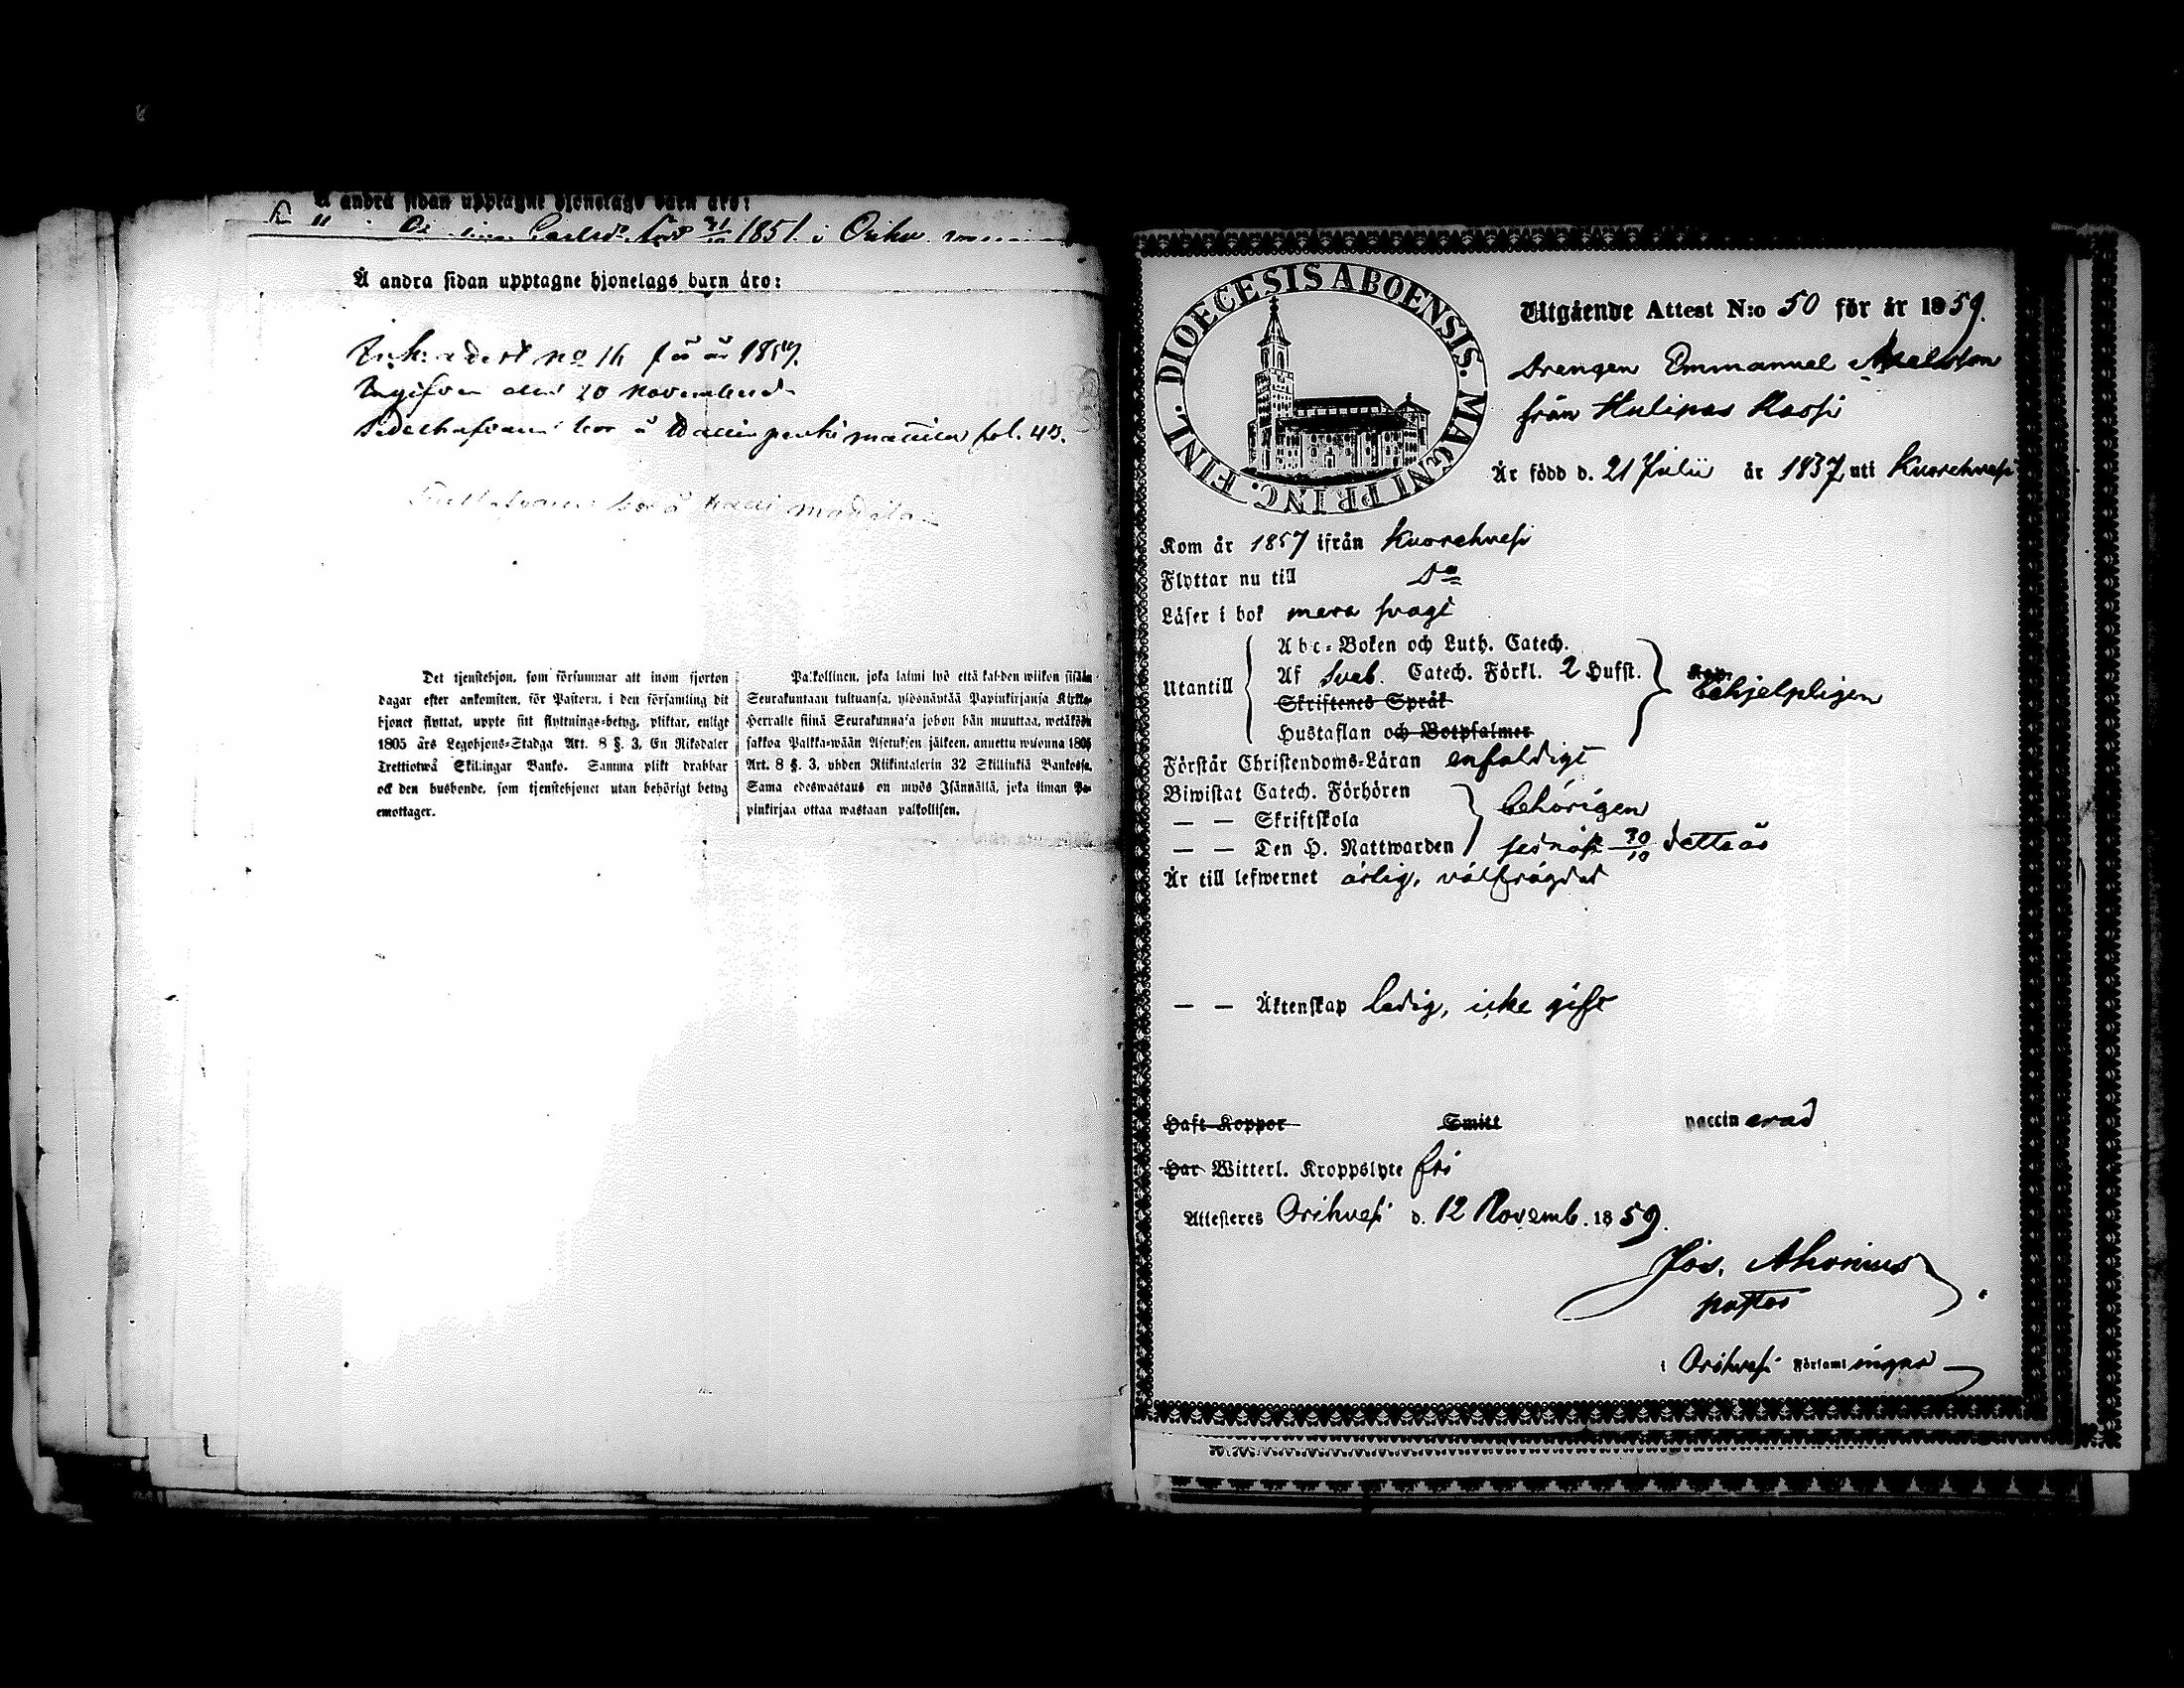 Å andra sidan upptagne hjonelags barn äro:
Carlsd. född 31/10 1851 i Orihv.
Å andra sidan upptagne hjonelags barn äro:
Ink: adest No 16 för år 1859.
Ingifven den 20 November
bor å fol. 43.
bor å
Det tjenstehjon, som försummar att inom fjorton
dagar efter ankomsten, för Pastorn, i den församling dit
hjonet flyttat, uppte sitt flyttnings-betyg, pliktar, enligt
1805 års Legohjons-Stadga Art. 8 §. 3, En Riksdaler
Trettiotwå Skillingar Banko. Samma plikt drabbar
ock den husbonde, som tjenstehjonet utan behörigt betyg
emottager.
Palkollinen, joka laimi lyö että kahden wiikon sisään
Seurakuntaan tultuansa, ylösnäyttää Papinkirjansa Kirkko-
Herralle siinä Seurakunnasa johon hän muuttaa, wetäköön
sakkoa Palkka-wään Asetuksen jälkeen, annettu wuonna 1805
Art. 8 §. 3, yhden Riikintalerin 32 Skillinkiä Bankossa.
Sama edeswastaus on myös Isännällä, joka ilman Pa-
pinkirjaa ottaa wastaan palkollisen.
DIOECESIS ABOENSIS. MAGNI PRINC. FINL.
Utgående Attest N:o 50 för år 1859.
Drengen Emmanuel
från Hulipas Kassi
Är född d. 21 Julii år 1837 uti Kuorehvesi
Kom år 1857 ifrån Kuorehvesi
Flyttar nu till Do
Läser i bok mera svagt
Utantill
Abc-Boken och Luth. Catech.
Af Sveb. Catech. Förkl. 2 Hufst.
Skriftenes Språk
Hustaflan och Botpsalmer
behjelpligen
Förstår Christendoms-Läran enfaldigt
Biwistat Catech. Förhören
— — Skriftskola
behörigen
— — Den H. Nattwarden sednast 30/10 detta år
Är till lefwernet ärlig, välfrägdad
— — Äktenskap ledig, icke gift
Haft Koppor Smitt vaccinerad
Har Witterl. Kroppslyte fri
Attesteres Orihvesi d. 12 Novemb. 1859.
Jos. Ahonius
pastor
i Orihvesi Församlingar